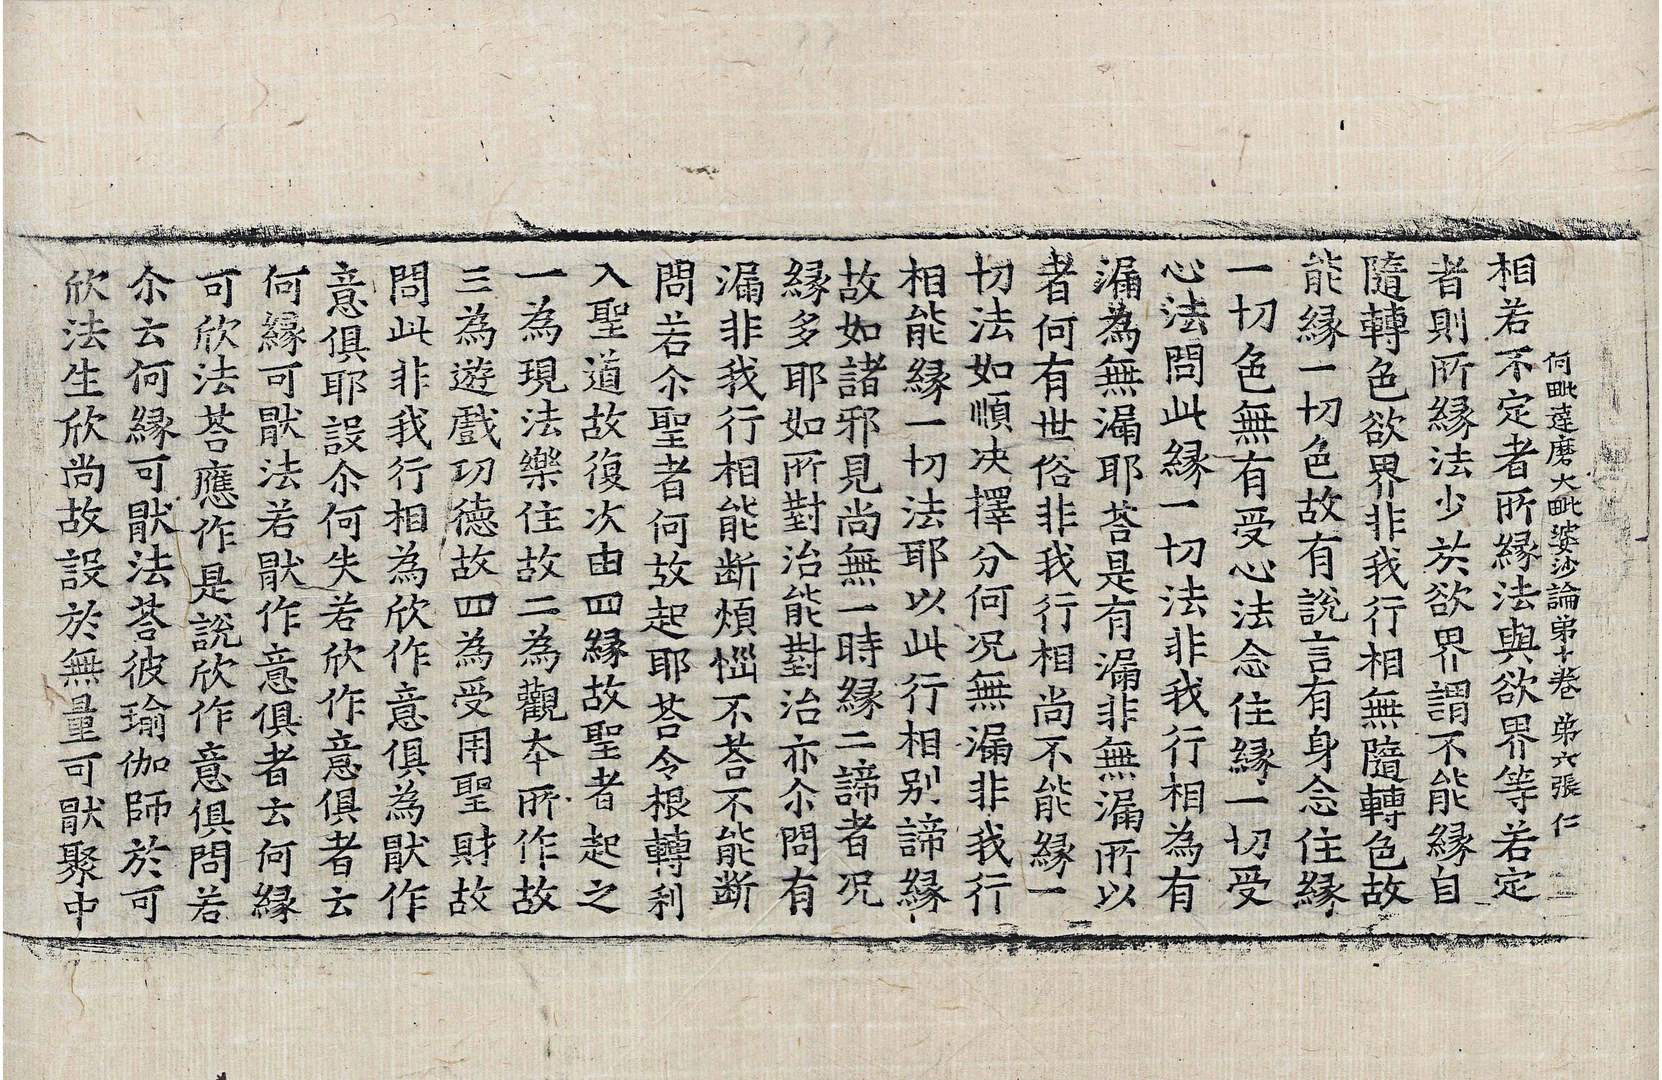 阿毗達磨大毗婆沙論第十卷 第六張 仁
相若不定者所緣法與欲界等若定
者則所緣法少於欲界謂不能緣自
隨轉色欲界非我行相無隨轉色故
能緣一切色故有說言有身念住緣
一切色無有受心法念住緣一切受
心法問此緣一切法非我行相為有
漏為無漏耶荅是有漏非無漏所以
者何有世俗非我行相尚不能緣一
切法如順決擇分何況無漏非我行
相能緣一切法耶以此行相別諦緣
故如諸邪見尚無一時緣二諦者況
緣多耶如所對治能對治亦尒問有
漏非我行相能断煩惱不荅不能断
問若尒聖者何故起耶荅令根轉利
入聖道故復次由四緣故聖者起之
一為現法樂住故二為觀本所作故
三為遊戲功德故四為受用聖財故
問此非我行相為欣作意俱為猒作
意俱耶設尒何失若欣作意俱者云
何緣可猒法若猒作意俱者云何緣
可欣法荅應作是說欣作意俱問若
尒云何緣可猒法荅彼瑜伽師於可
欣法生欣尚故設於無量可猒聚中